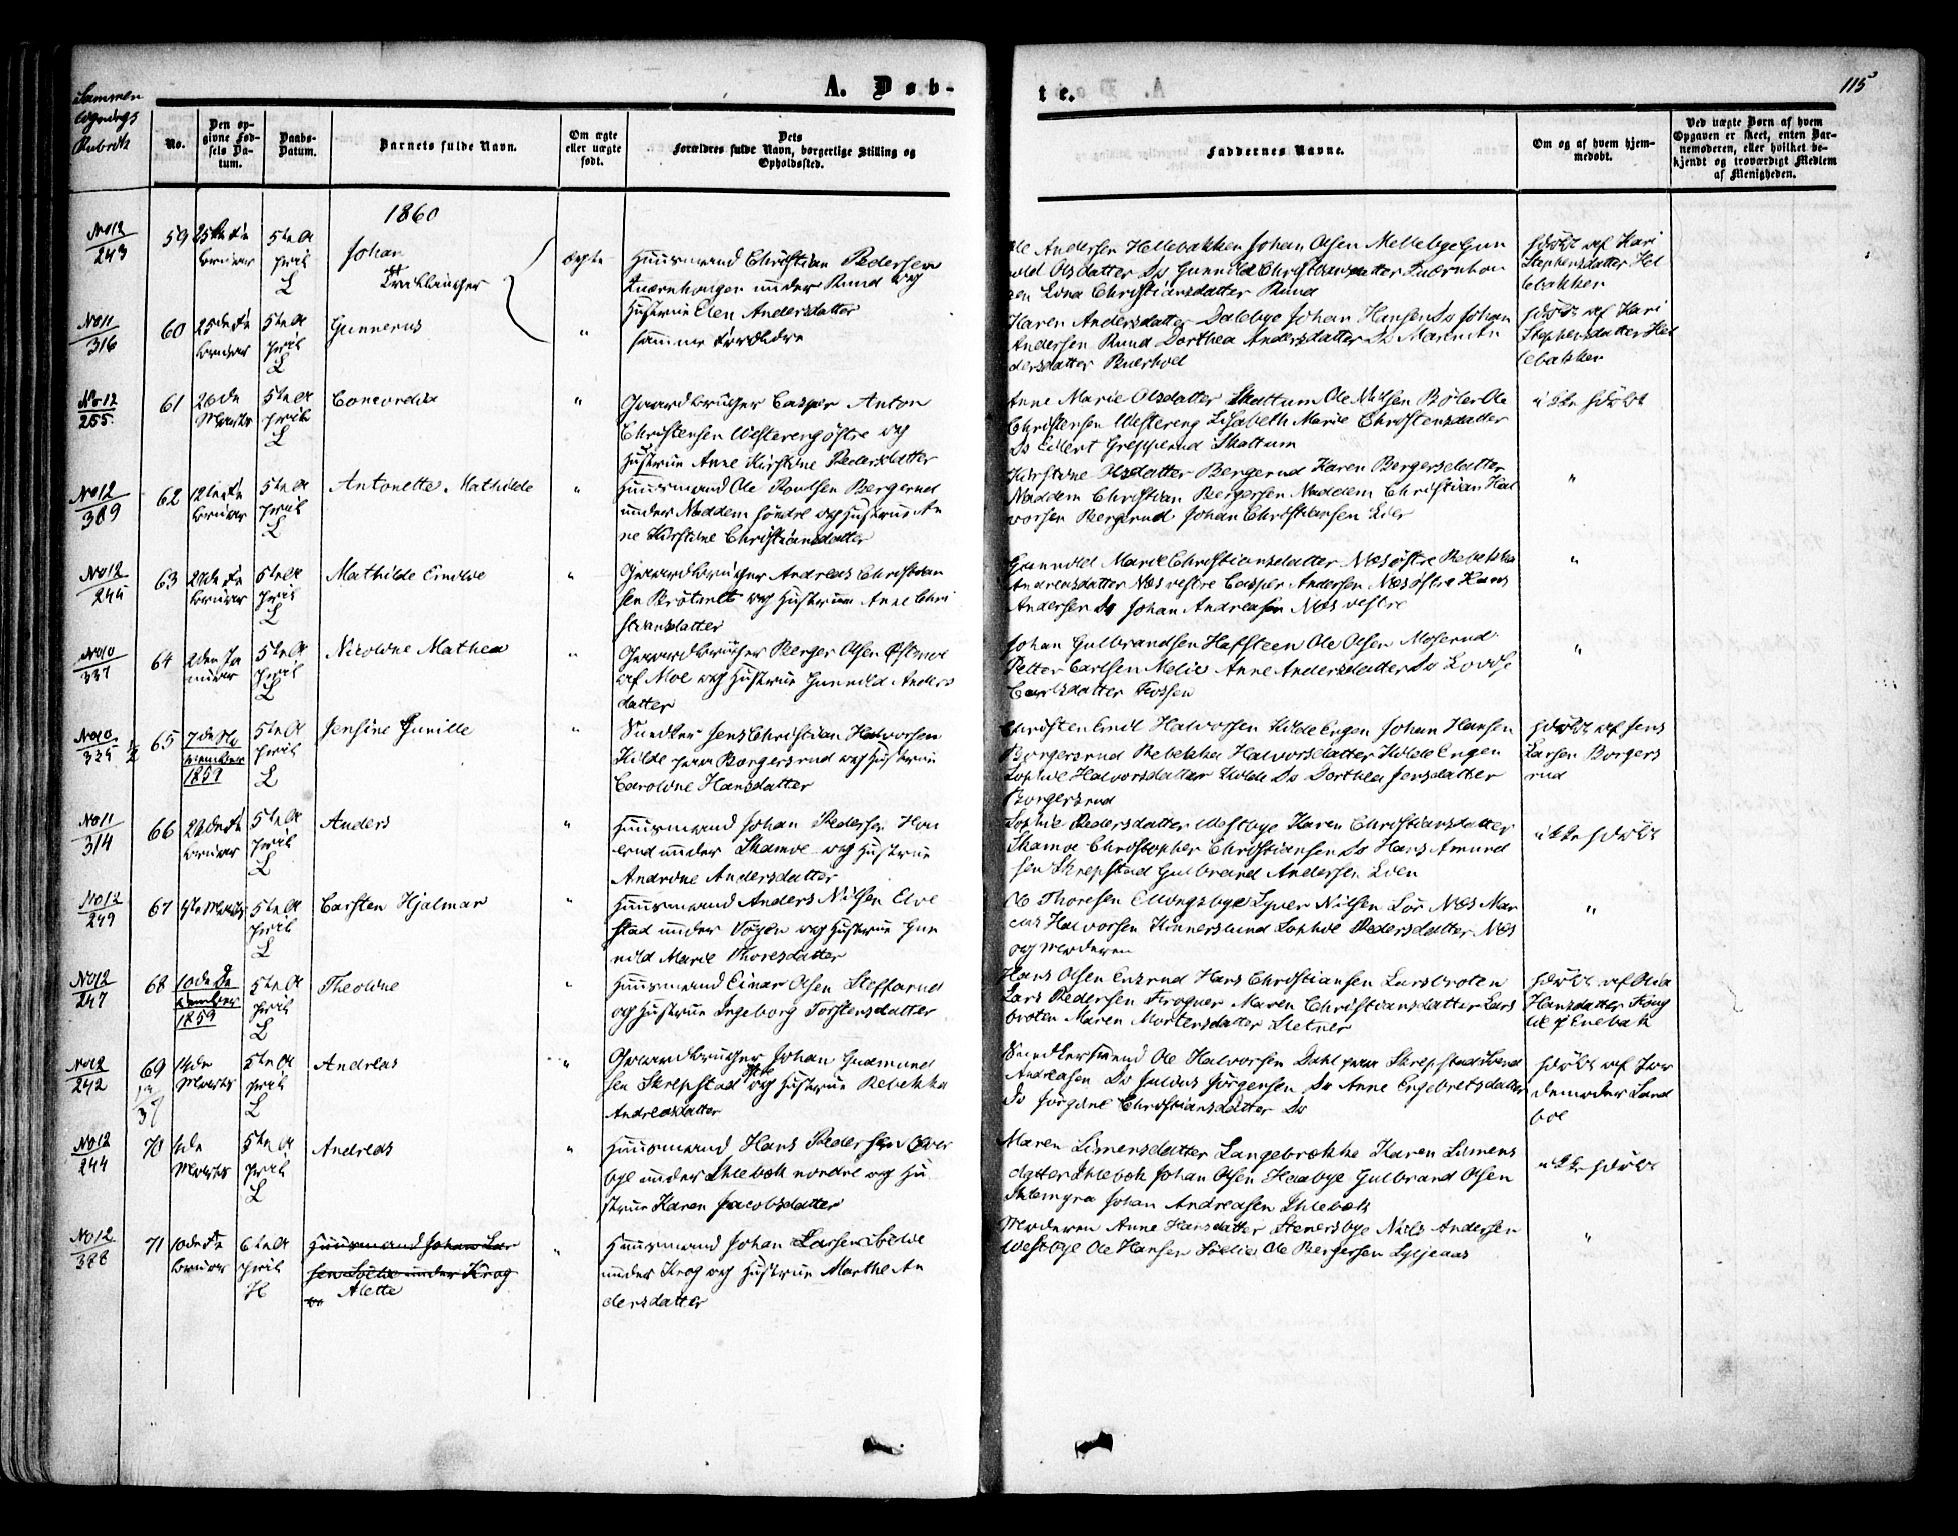 A. Døb-
te.
115
Sammen
lignings
Rubrik
No.
Den op-
givne Fød-
sels Da-
tum.
Daabs-
Datum.
Barnets fulde Navn.
Om ægte
eller uægte
født.
Dets
Forældres fulde Navn, borgerlige Stilling og
Opholdssted.
Faddernes Navne.
Om og af hvem hjem-
medøbt.
Ved uægte Børn af hvem
Opgaven er skeet, enten Bar-
nemoderen, eller hvilket be-
kjendt og troværdigt Medlem
af Menigheden.
1860
No 12
243
59
25de Fe
bruar
5te A
pril
L
Johan
Tvillinger
ægte
Huusmand Christian Pedersen
Qværnhaugen under Rund og
Hustrue Elen Andersdatter
Ole Andersen Hellebækken Johan Olsen Mellebye Gun
Olsdatter Do Gunnild Christiansdatter Quærnhou
gen Lina Christiansdatter Rund
hjdøbt af Kari
Stephensdatter Hel
lebækken
No 11
316
60
25de Fe
bruar
5te A
pril
L
Gunnerus
"
samme Forældre
Karen Andersdatter Dalebye Johan Hansen Do Johan
Andersen Rund Dorthea Andersdatter Do Maren An
dersdatter
hjdøbt af Kari
Stephensdatter Hel
lebækken
No 12
255
61
2de
Marts
5te A
pril
L
Concordia
"
Gaardbruger Casper Anton
Christensen Westereng østre og
Hustrue Anne Kirstine Pedersdatter
Anne Marie Olsdatter Skattum Ole Nilsen Bøler Ole
Christensen Westereng Lisabeth Marie Christensdatter
Do Edlert Gresserud Skattum
ikke hjdøbt
No 12
389
62
12te Fe
bruar
5te A
pril
L
Antonette Mathilde
"
Huusmand Ole Knudsen Bergerud
under Naddem søndre og Hustrue An
ne Kirstine Christiansdatter
Kirstine Olsdatter Bergerud Karen Bergersdatter
Naddem Christian Bergersen Naddem Christian Hal
vorsen Bergerud Johan Christiansen Lier
"
No 12
245
63
de Fe
bruar
5te A
pril
L
Mathilde Emilie
"
Gaardbruger Andreas Christian
sen Brøtvet og Hustrue Anne Chri
stiansdatter
Gunnild Marie Christiansdatter Næs østre Rebekka
Andreasdatter Næs vestre Casper Andersen Næs østre Hans
Andersen Do Johan Andreasen Næs vestre
"
No 10
337
64
2den Ja
nuar
5te A
pril
L
Nicoline Mathea
"
Gaardbruger Berger Olsen Østmoe
af Moe og Hustrue Gunnild Anders
datter
Johan Gulbrandsen Haffsteen Ole Olsen Moserud
Petter Carlsen Melie Anne Andersdatter Do Lovise
Carlsdatter Fossen
"
No 10
335
1/2
65
7de No
vember
1859
5te A
pril
L
Jensine Gunille
"
Snedker Jens Christian Halvorsen
Kilde paa Borgersrud og Hustrue
Caroline Hansdatter
Christen Emil Halvorsen Kilde Engen Johan Hansen
Borgersrud Rebekka Halvorsdatter Kilde Engen
Sophie Halvorsdatter Kilde Do Dorthea Jensdatter
Borgersrud
hjdøbt af Jens
Larsen Borgers
rud
No 11
314
66
de Fe
bruar
5te A
pril
L
Anders
"
Huusmand Johan Pedersen Hou
erud under Skamoe og Hustrue
Andrine Andersdatter
Sophie Pedersdatter Westbye Karen Christiansdatter
Skamoe Christopher Christiansen Do Hans Amund
sen Skrepstad Gulbrand Andersen Lien
ikke hjdøbt
No 12
249
67
Marts
5te A
pril
L
Carsten Hjalmar
"
Huusmand Anders Nilsen Elve
stad under Vøyen og Hustrue Gun
nild Marie Thoresdatter
Ole Thoresen Ellingsbye Syver Nilsen Lør Næs Mar
cus Halvorsen Kinnerslund Sophie Pedersdatter Næs
og Moderen
"
No 12
247
68
10de De
cember
1859
5te A
pril
L
Theoline
"
Huusmand Einar Olsen Steffarud
og Hustrue Ingeborg Torstensdatter
Hans Olsen Enerud Hans Christiansen Larsbroten
Lars Pedersen Frogner Maren Christiansdatter Lars
broten Maren Mortensdatter Sletner
hjdøbt af Olea
Hansdatter
i Enebak
No 12
242
69
37
14de
Marts
5te A
pril
L
Andreas
"
Gaardbruger Johan Gudmund
sen Skrepstad og Hustrue Rebekka
Andreasdatter
Snedkersvend Ole Halvorsen Dahl paa Skrepstad
Andreasen Do Julius Jørgensen Do Anne Engebretsdatter
Do Jørgine Christiansdatter Do
hjdøbt af Jor
demoder Sand
boe
No 12
244
70
de
Marts
5te A
pril
L
Andreas
"
Huusmand Hans Pedersen Over
bye under Ihlebæk nordre og Hu
strue Karen Jacobsdatter
Maren Simensdatter Langebrække Karen Simens
datter Ihlebæk Johan Olsen Haabye Gulbrand Olsen
Ihlemyra Johan Andreasen Ihlebæk
ikke hjdøbt
No 12
388
71
10de Fe
bruar
6te A
pril
H
Huusmand Johan Lar
sen Solie under Krog
Alette
"
Huusmand Johan Larsen Solie
under Krog og Hustrue Marthe An
dersdatter
Moderen Anne Hansdatter Stenersbye Niels Andersen
Westbye Ole Hansen Solie Ole Bergersen Syljeaas
"